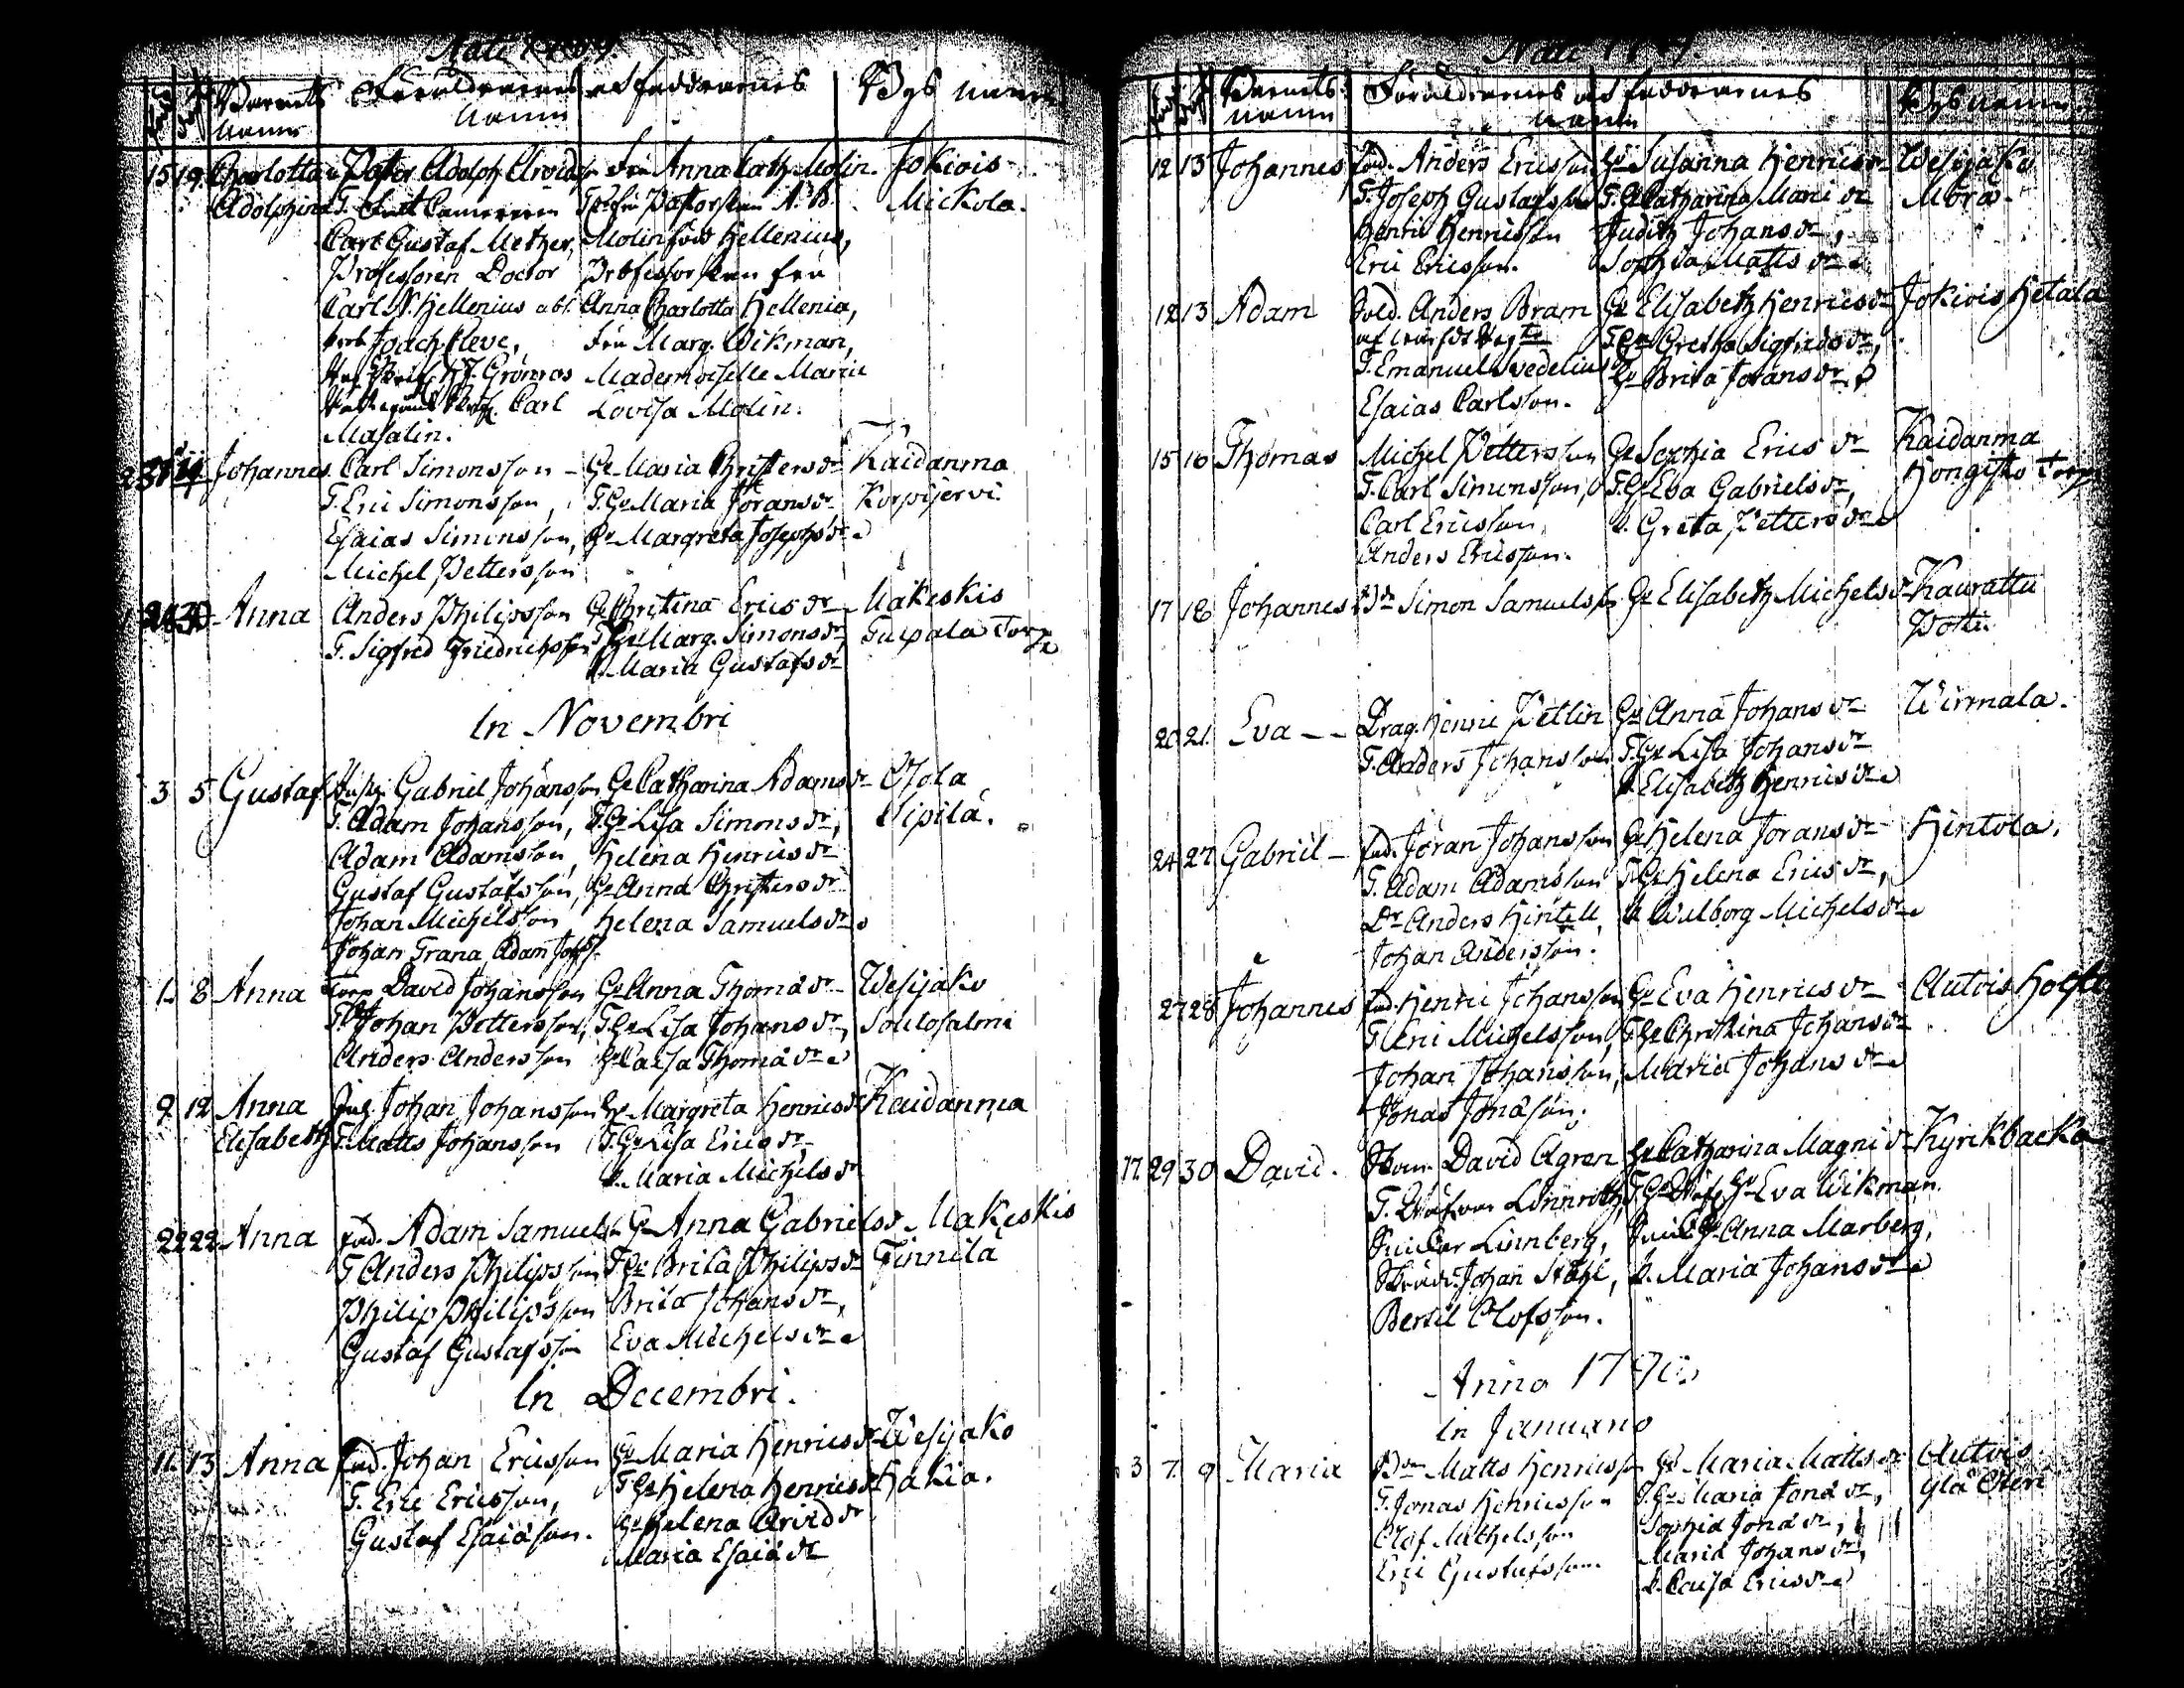 Nati 1789.
Barnets Föräldrarnes och faddrarnes Bys namn
namn namn
15 19 Charlotta Pastor Adolph Arvid Fru Anna Cath. Molin. Jokiois
Adolphina T. Camereren Pastorskan A. B. Mickola.
Carl Gustaf Metzer, Molin född Hellenius,
Professoren Doctor Professorskan Fru
Carl N. Hellenius Anna Charlotta Hellenia,
Joach. Cleve, Fru Marg. Wikman,
Grönroos Mademoiselle Maria
Carl Lovisa Molin.
Masalin.
Johannes. Carl Simonsson - H. Maria Christersdr Kaidanma
T. Eric Simonsson, T. H. Maria Jöransdr Korpijervi.
Esaias Simonsson, H. Margreta Josephsdr
Michel Pettersson
Anna Anders Philipsson H. Christina Ericsdr Makeskis
T. Sigfred Friedrichsson T. H. Marg. Simonsdr, Tulpala Torp
P. Maria Gustafsdr
In Novembri
3 5 Gustaf Gabriel Johansson H. Catharina Adamsdr Ojola
T. Adam Johansson, T. H. Lisa Simonsdr, Sipilä.
Adam Adamsson, Helena Henricsdr
Gustaf Gustafsson, H. Anna Christersdr
Johan Michelsson Helena Samuelsdr
Johan Grana, Adam Johss.
8 Anna Torp. David Johansson H. Anna Thomædr Wesijako
T. Johan Pettersson, T. H. Lisa Johansdr, Soulosalmi
Anders Andersson H. Caisa Thomædr
9 12 Anna Johan Johansson H. Margreta Henricsdr Kaidanma
Elisabeth T. Matts Johansson T. H. Lisa Ericsdr
P. Maria Michelsdr
22 22 Anna Adam Samuels. H. Anna Gabrielsdr Makeskis
T. Anders Philipsson T. H. Brita Philipsdr Finnilä
Philip Philipsson Brita Johansdr,
Gustaf Gustafsson Eva Michelsdr
In Decembri.
11 13 Anna Johan Ericsson H. Maria Henricsdr Wesijako
T. Eric Ericsson, T. H. Helena Henricsdr Hakia.
Gustaf Esaiasson. H. Helena Arvidsdr
Maria Esaiædr
Nati 1789.
Barnets Föräldrarnes och faddrarnes Bys namn
namn namn
12 13 Johannes Anders Ericsson H. Susanna Henricsdr Wesijako
T. Joseph Gustafsson T. H. Catharina Marci dr Mora.
Henric Henricsson Judith Johansdr,
Eric Ericsson. Sophia Mattsdr
12 13 Adam Sold. Anders Bram H. Elisabeth Henricsdr Jokiois Hetala
T. H. Gretha Sigfridsdr,
T. Emanuel Svedelius H. Brita Joransdr
Esaias Carlsson.
15 16 Thomas Michel Pettersson H. Sophia Erics dr Kaidanma
T. Carl Simonsson, T. H. Eva Gabrielsdr, Hongisto Torp
Carl Ericsson, P. Greta Pettersdr
Anders Ericsson.
17 18 Johannes Simon Samuelss. H. Elisabeth Michelsdr Kaurattu
20 21. Eva - - Drag. Henric Petlin H. Anna Johansdr Wirmala.
T. Anders Johansson T. H. Lisa Johansdr
P. Elisabeth Henricsdr
24 27 Gabriel - Jöran Johansson H. Helena Joransdr Hintola.
T. Adam Adamsson T. H. Helena Ericsdr,
Dr Anders Hintell, P. Walborg Michelsdr
Johan Andersson.
27 28 Johannes Henric Johansson H. Eva Henricsdr Autois
T. Eric Michelsson, T. H. Christina Johansdr
Johan Johansson, Maria Johansdr
Jonas Jonæson.
17. 29 30 David. David Agren H. Catharina Magni dr Kyrckbacka
T. Lönnroth, T. H. Eva Wikman.
Linnberg, H. Anna Marberg,
Johan Ståhl, P. Maria Johansdr
Bertil Olofsson.
Anno 1790
In Januario
3 7 9 Maria Matts Henricsson H. Maria Mattsdr Autois
T. Jonas Henricsson T. H. Maria Jonædr, Ylä Oteri
Olof Mathelsson Sophia Jonædr,
Eric Gustafsson Maria Johansdr,
P. Caisa Ericsdr